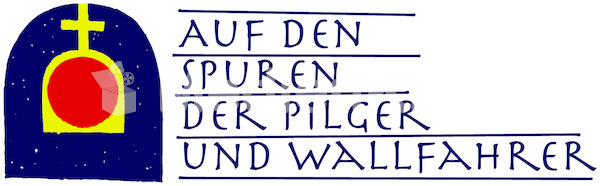 AUF DEN
SPUREN
DER PILGER
UND WALLFAHRER